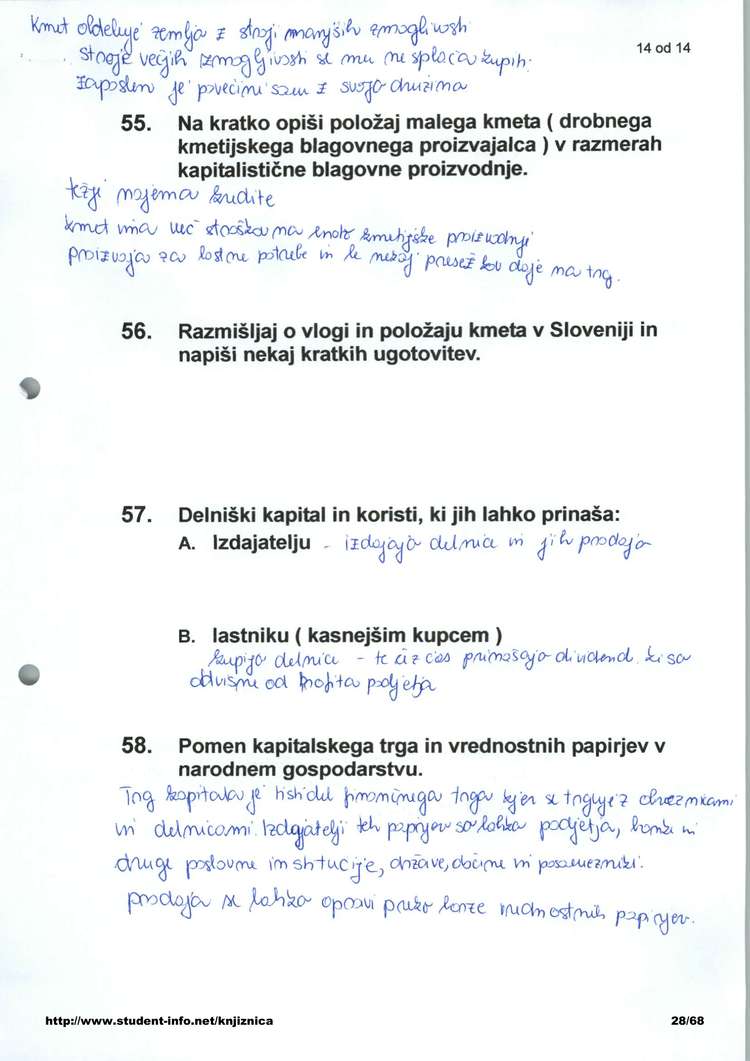 Kmet obdeluje zemljo z stroji manjših zmogljivosti
14 od 14
stroje večjih zmogljivosti se mu ne splača kupiti.
zaposlen je povečini sam z svojo družino
55. Na kratko opiši položaj malega kmeta ( drobnega
kmetijskega blagovnega proizvajalca ) v razmerah
kapitalistične blagovne proizvodnje.
težje najema kredite
kmet ima več stroškov na enoto kmetijske proizvodnje
proizvaja za lastne potrebe in le nekaj presežkov daje na trg.
56. Razmišljaj o vlogi in položaju kmeta v Sloveniji in
napiši nekaj kratkih ugotovitev.
57. Delniški kapital in koristi, ki jih lahko prinaša:
A. Izdajatelju - izdajajo delnice in jih prodaja
B. lastniku ( kasnejšim kupcem )
kupijo delnice - te čez čas prinašajo dividend. ki so
odvisne od profita podjetja
58. Pomen kapitalskega trga in vrednostnih papirjev v
narodnem gospodarstvu.
Trg kapitala je tisti del finančnega trga kjer se trguje z obveznicami
in delnicami. Izdajatelji teh papirjev so lahko podjetja, banke in
druge poslovne institucije, države, občine in posamezniki.
prodaja se lahko opravi preko borze vrednostnih papirjev.
http://www.student-info.net/knjiznica
28/68